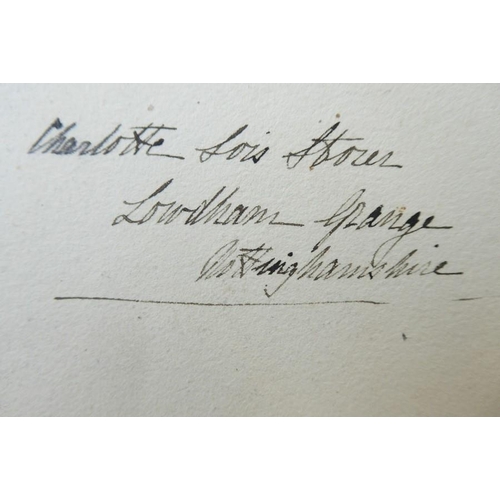 Charlotte Lois Storer
Lowdham Grange
Nottinghamshire